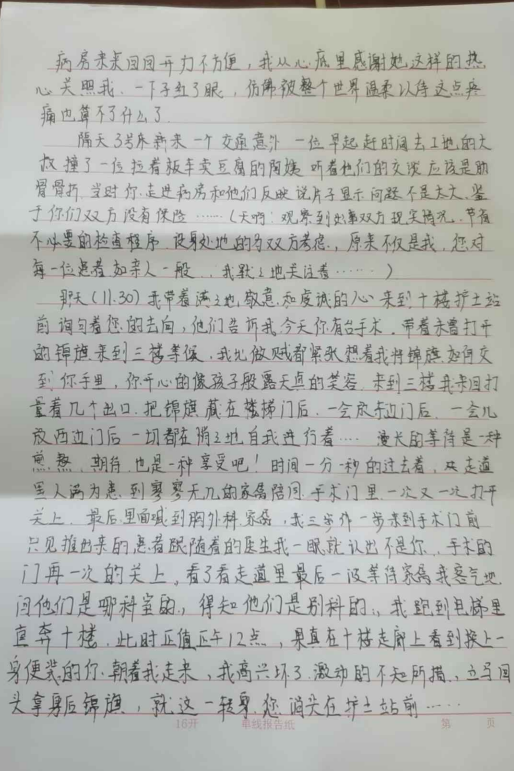 病房来来回回开力不方便，我从心底里感谢她这样的热
心关照我．一下子红了眼，仿佛被整个世界温柔以待这点疼
痛也算不了什么了．
隔天23号床新来一个交通意外 一位早起赶时间去工地的大
叔撞了一位拉着板车卖豆腐的阿姨 听着他们的交谈应该是肋
骨骨折．当时你走进病房和他们反映说片子显示问题不是太大．鉴
于你们双方没有保险……（天呐：观察到如事双方现实情况．节省
不必要的检查程序．设身处地的为双方考虑．，原来不仅是我，您对
每一位患者如亲人一般...我默默地关注着……）
那天（11.30）我带着满满地敬意和虔诚的心来到十楼护士站
前询问着您的去向，他们告诉我今天你有台手术．带着未曾打开
的锦旗来到三楼等候，我比做贼都紧张想着我将锦旗如何交
到你手里，你开心的像孩子般露天真的笑容．来到三楼我来回打
量着几个出口．把锦旗藏在楼梯门后．一会放东边门后．一会儿
放西边门后 一切都在悄悄地自我进行着…．漫长的等待是一种
煎熬，期待．也是一种享受吧！时间一分一秒的过去着，从走道
里人满为患到寥寥无几的家属陪同．手术门里一次又一次打开
关上．最后里面喊到胸外科家属，我三步作一步来到手术门前
只见推出来的患者跟随着的医生我一眼就认出不是你．手术的
门再一次的关上，看了看走道里最后一波等待家属我客气地
问他们是哪科室的，得知他们是别科的，我跑到电梯里
直奔十楼．此时正值正午12点，果真在十楼走廊上看到换上一
身便装的你．朝着我走来，我高兴坏了．激动的不知所措，立马回
头拿身后锦旗，就这一转身．您消失在护士站前……
16开 单线报告纸 第 页